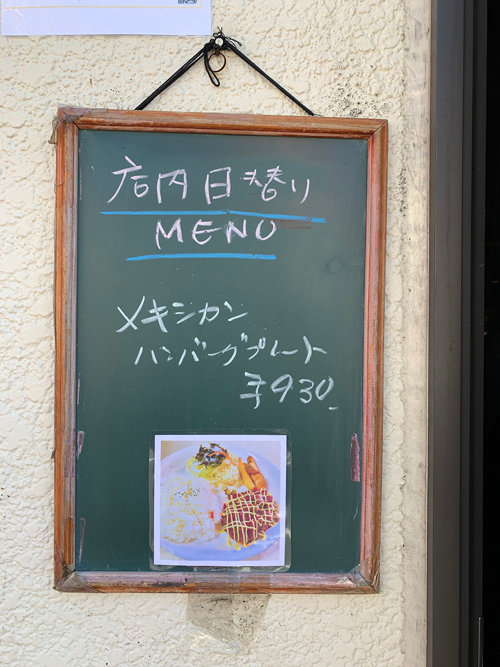 店内日替り
MENU
メキシカン
ハンバーグプレート
¥930